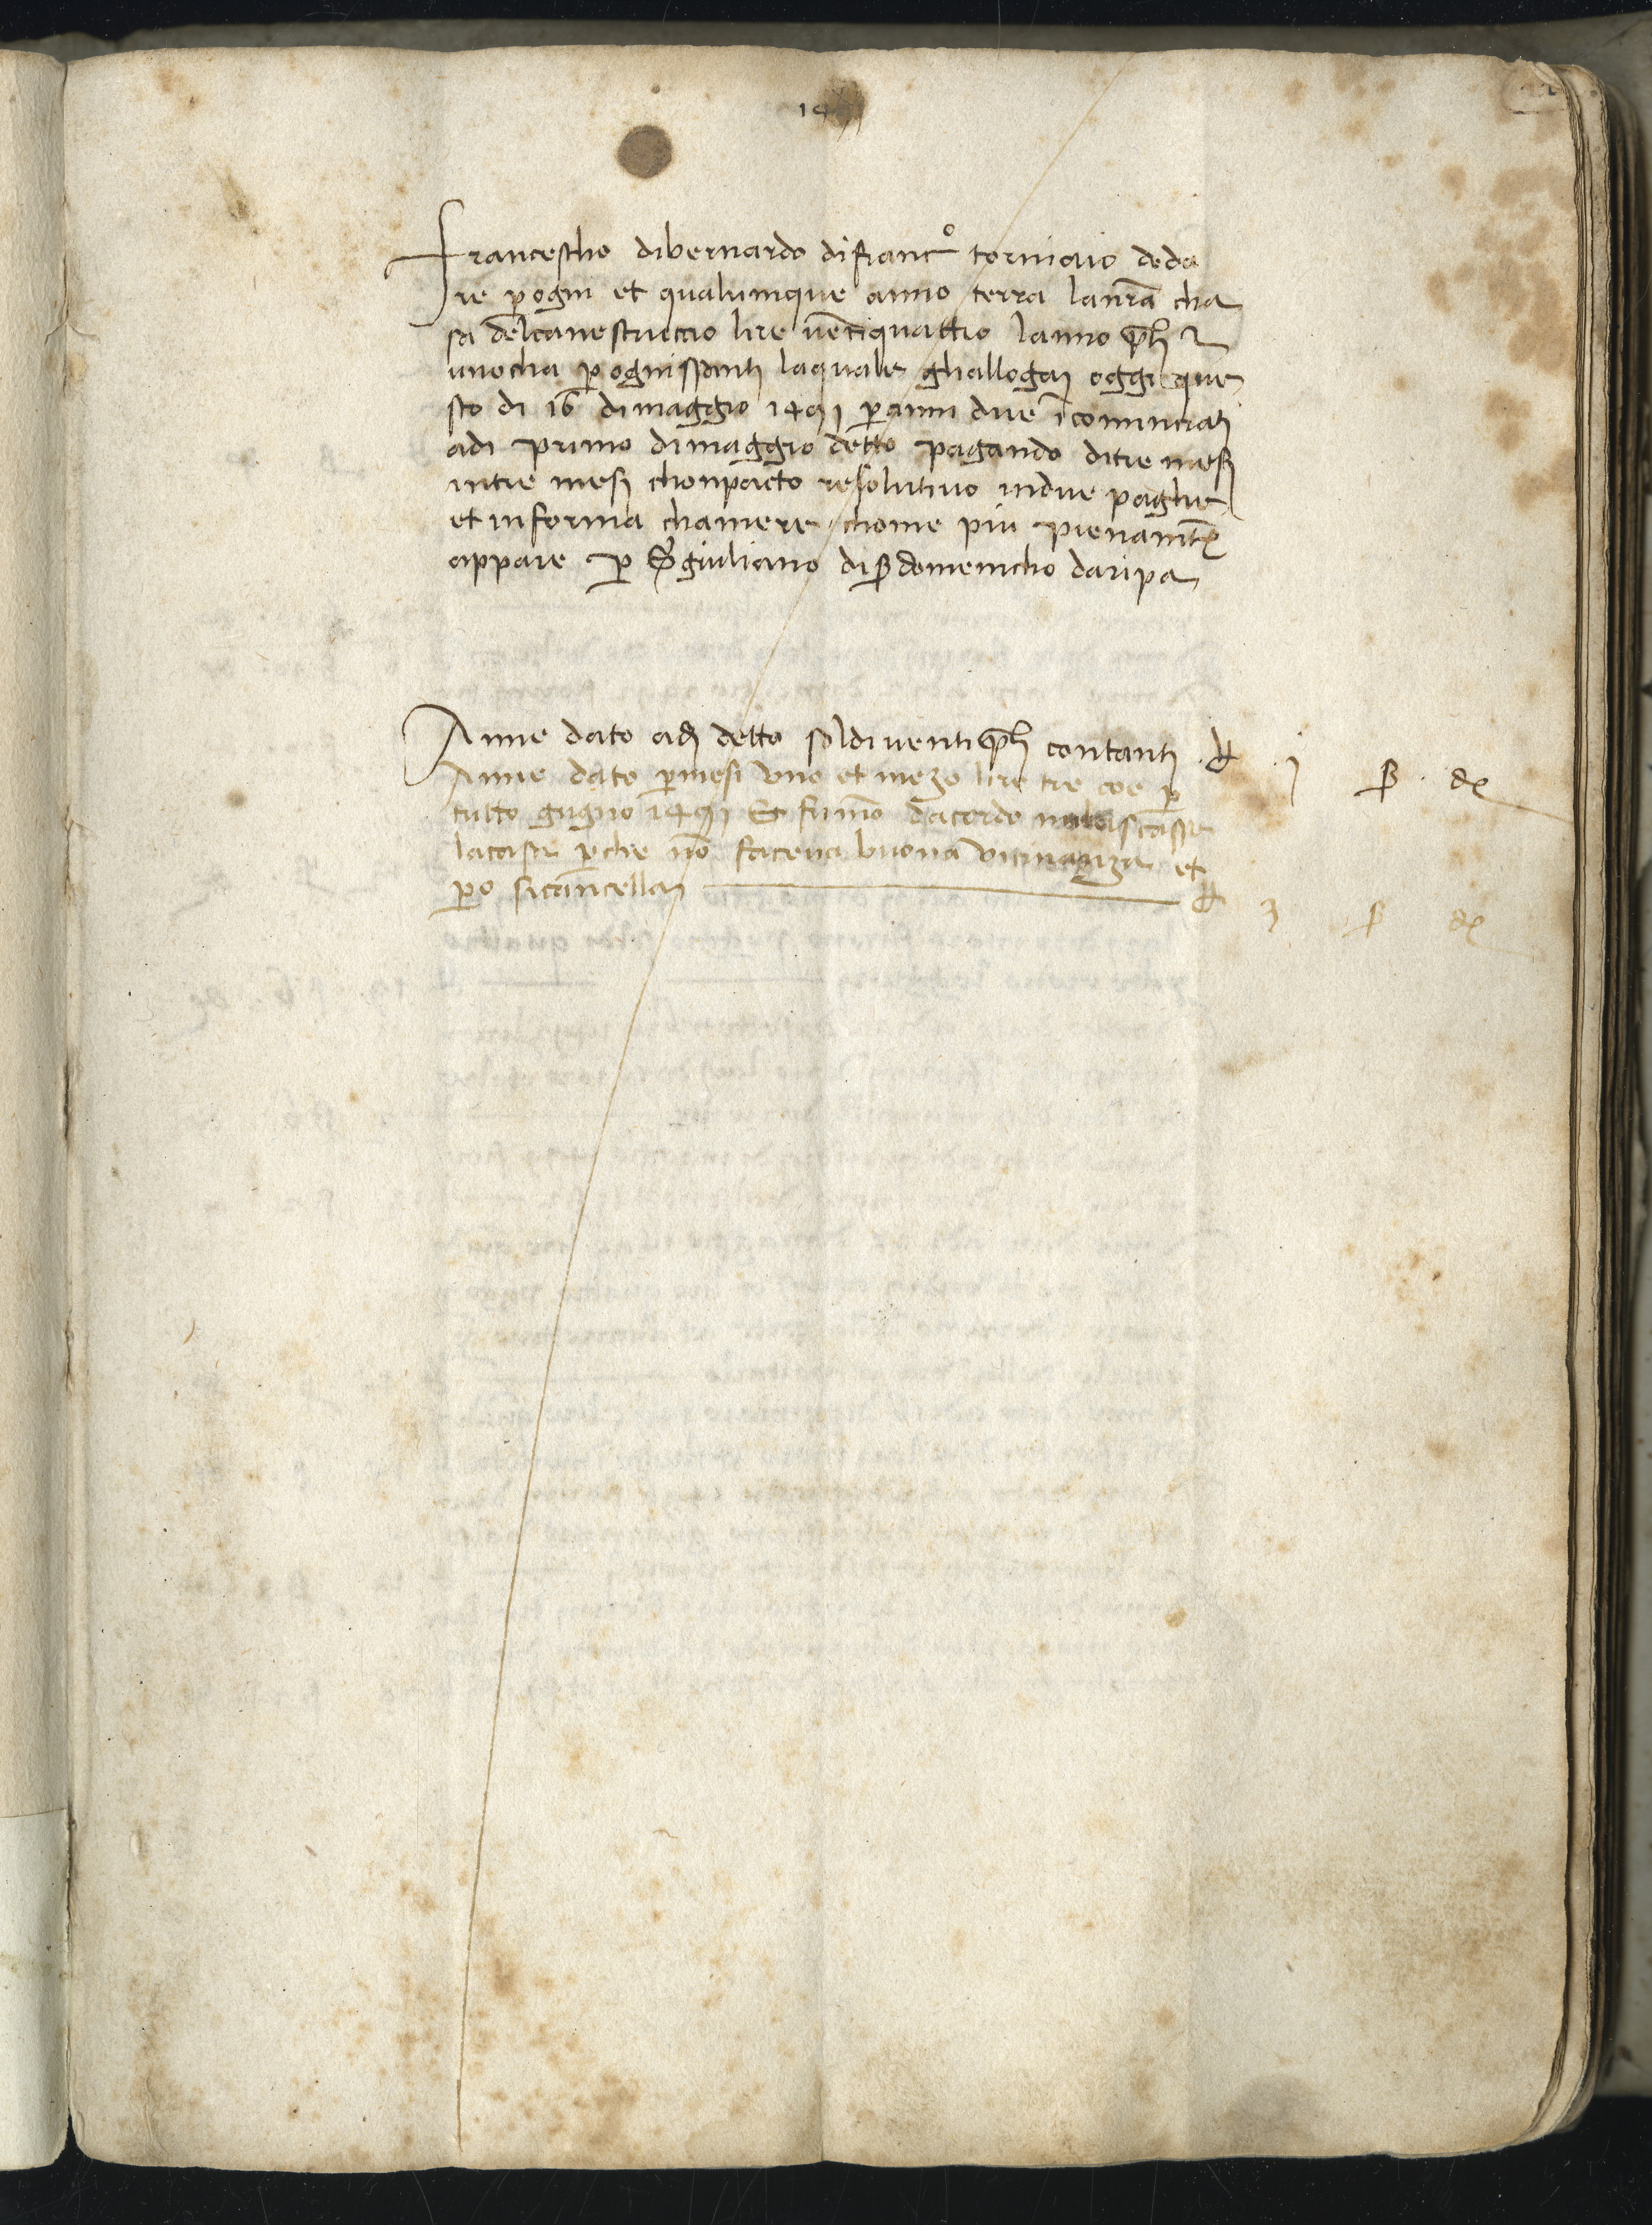 149
Francescho dibernardo difranc° torniaio deda
re p ogni et qualumque anno terra lanr̄a cha
sa delcanestruccio lire vētiquattro lanno
uno cha p ognissanti laquale ghallogai oggi que
sto di 16 dimaggio 1491 p anni due ī cominciati
adi primo dimaggio detto pagando ditre mesi
intre mesi chonpacto resolutivo indue paghe
et informa chamere chome piu pienamēte
appare p Sr giuliano di S domenicho daripa
Anne dato adi detto soldi venti contanti . ℔ . j ß . đ
Anne dato p mesi uno et mezo lire tre coe p
tutto gugno 1491 Et fumō dacordo mi lasciasse
lacasa p che nō faceva buona vicinanza et
po sicāncellai ℔ 3 ß đ